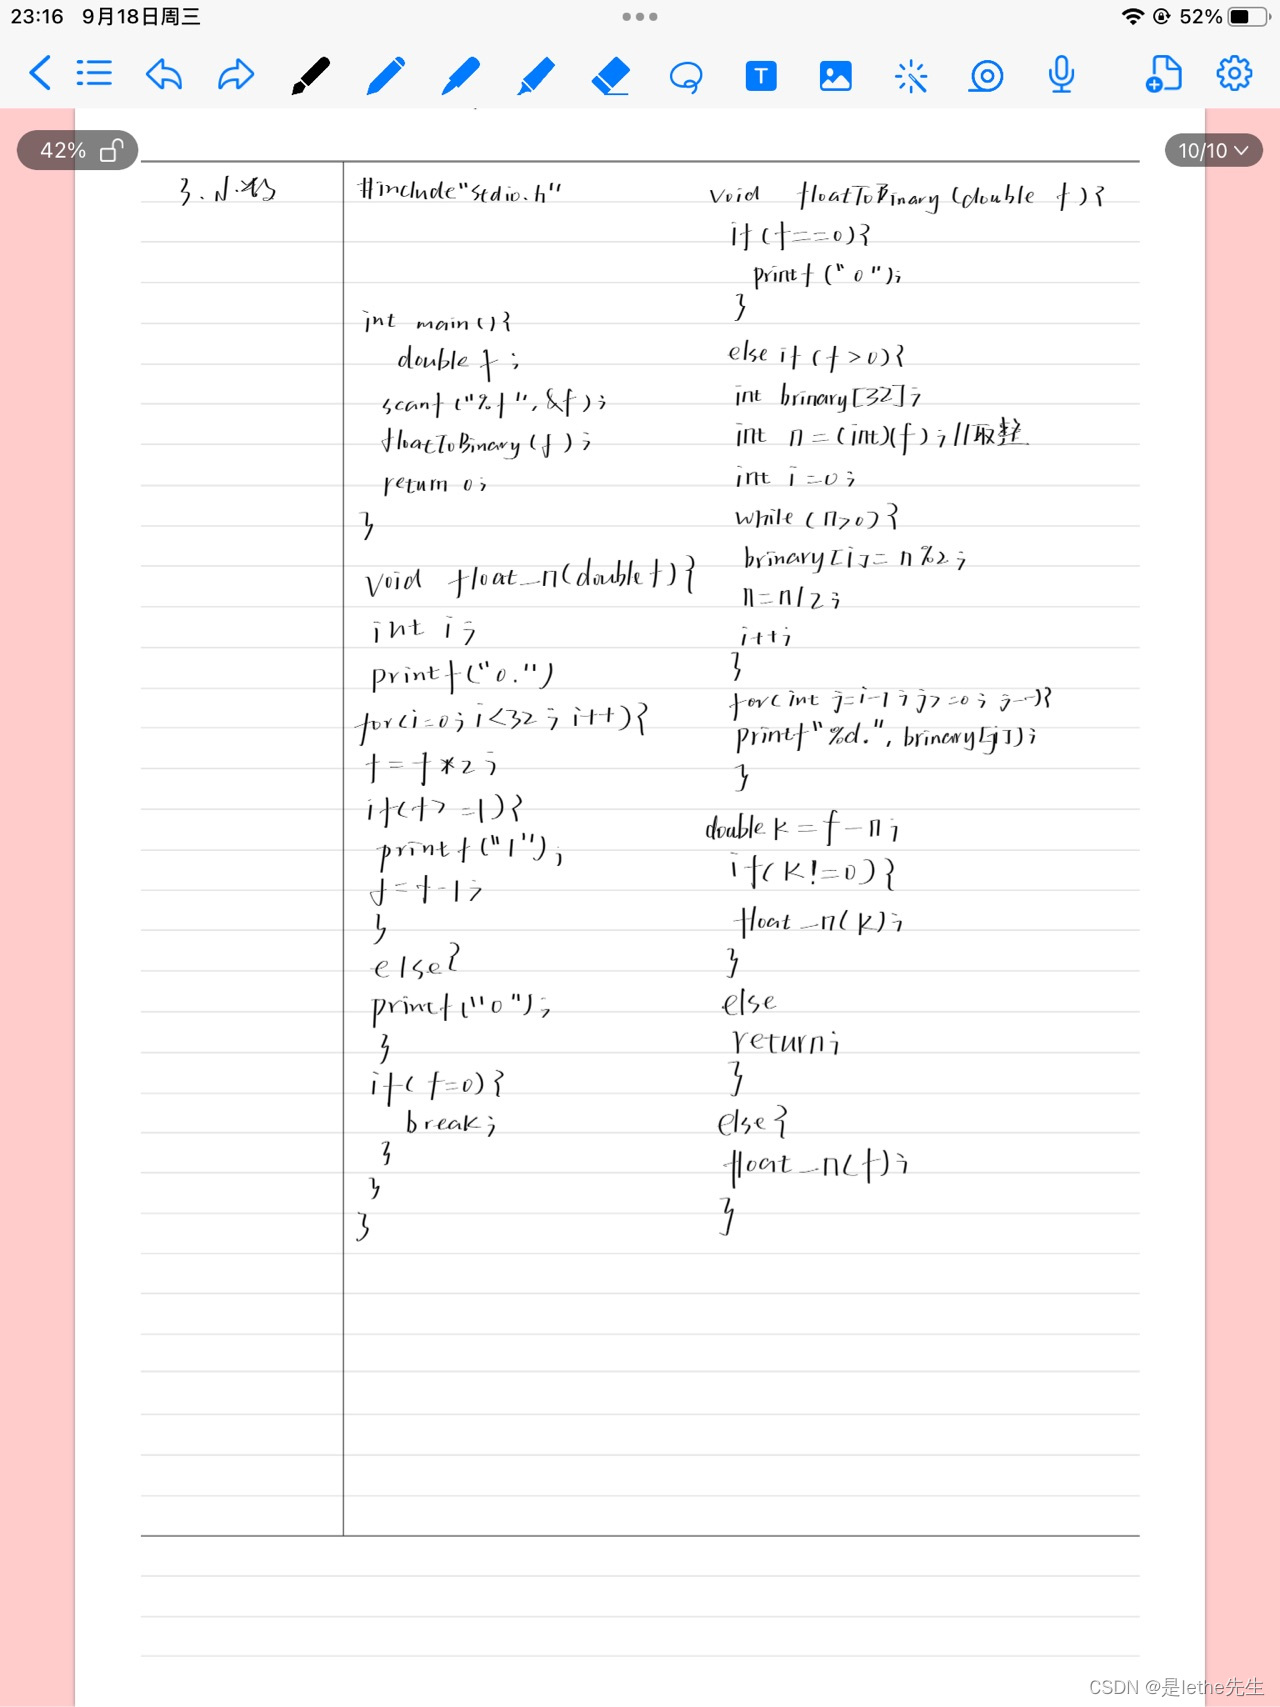 23:16 9月18日周三
52%
T
42%
10/10
3.小数
#include"stdio.h"
int main(){
double f;
scanf("%f",&f);
floatToBinary(f);
return 0;
}
void float_n(double f){
int i;
printf("0.")
for(i=0;i<32;i++){
f=f*2;
if(f>=1){
printf("1");
f=f-1;
}
else{
printf("0");
}
if(f=0){
break;
}
}
}
void floatToBinary(double f){
if(f==0){
printf("0");
}
else if(f>0){
int brinary[32];
int n=(int)(f);//取整
int i=0;
while(n>0){
brinary[i]=n%2;
n=n/2;
i++;
}
for(int j=i-1;j>=0;j--){
printf"%d.",brinary[j]);
}
double k=f-n;
if(k!=0){
float_n(k);
}
else
return;
}
else{
float_n(f);
}
CSDN @是lethe先生